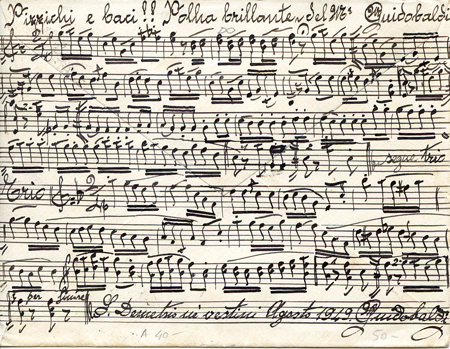 Pizzichi e baci!! Polka brillante del M° Guidobaldi
segue trio
Trio
per finire
S. Demetrio nè vestini Agosto 1929 Guidobaldi
A 40- 50-